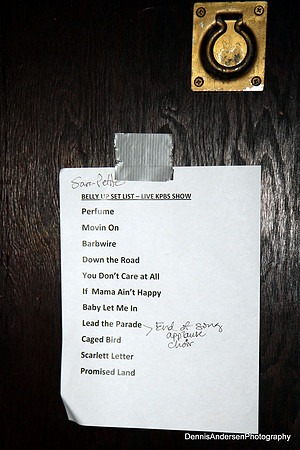 Sara Petite
BELLY UP SET LIST – LIVE KPBS SHOW
Perfume
Movin On
Barbwire
Down the Road
You Don't Care at All
If Mama Ain't Happy
Baby Let Me In
Lead the Parade
End of song
applause
choir
Caged Bird
Scarlett Letter
Promised Land
DennisAndersenPhotography